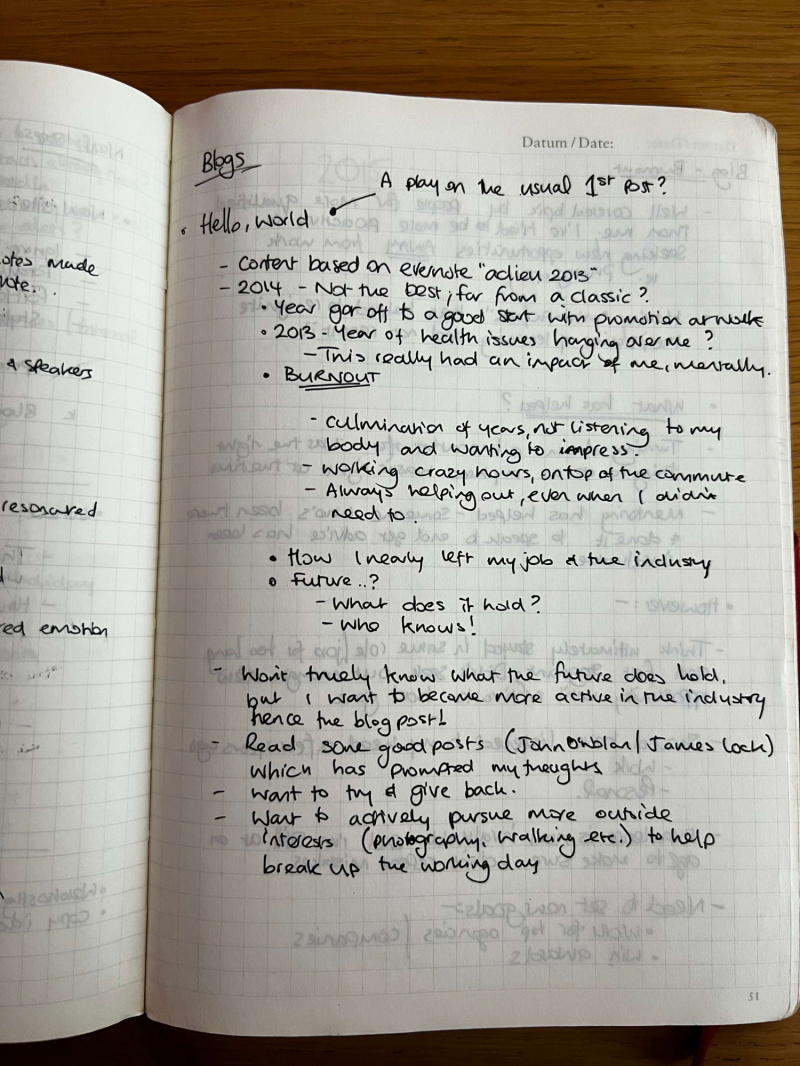 otes made
ute..
& speakers
resonated
red emotion
Datum / Date:
Blogs
A play on the usual 1st post?
• Hello, world
- Content based on evernote "adieu 2013"
- 2014 - Not the best; far from a classic?
• Year got off to a good start with promotion at work
• 2013 - Year of health issues hanging over me?
- This really had an impact of me, mentally.
• BURNOUT
- culmination of years, not listening to my
body and wanting to impress.
- working crazy hours, on top of the commute
- Always helping out, even when I didn't
need to.
• How I nearly left my job & the industry
• Future..?
- What does it hold?
- Who knows!
- Won't truely know what the future does hold,
but I want to become more active in the industry
hence the blog post!
- Read some good posts (John / James Lock)
which has prompted my thoughts
- want to try & give back.
- Want to actively pursue more outside
interests (photography, walking etc.) to help
break up the working day
51